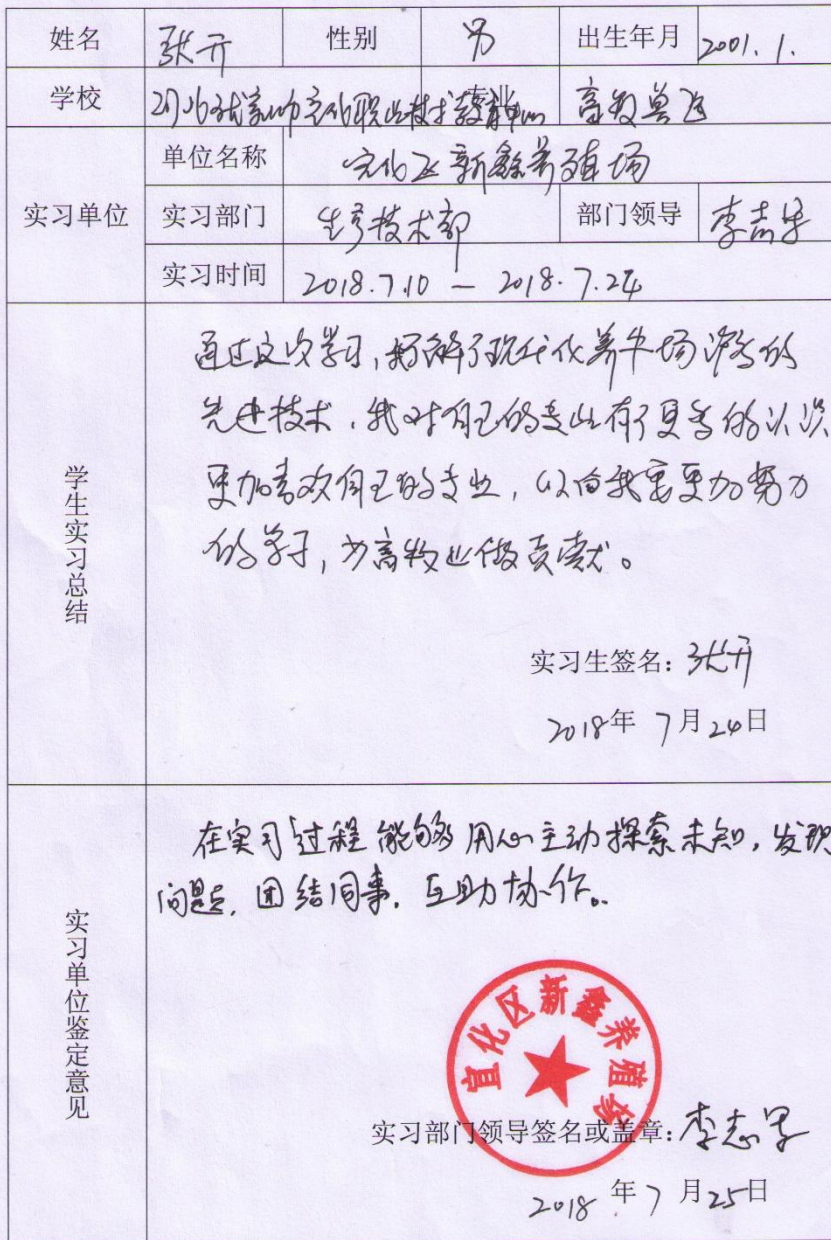 姓名 张开 性别 男 出生年月 2001.1.
学校 河北张家口市宣化职业技术教育中心 专业 畜牧兽医
实习单位
单位名称 宣化区新鑫养殖场
实习部门 生产技术部 部门领导
实习时间 2018.7.10 — 2018.7.24
学生实习总结
通过这次学习,了解了现代化养牛场的
先进技术,我对自己的专业有了更多的认识
更加喜欢自己的专业,以后我要更加努力
的学习,为畜牧业做贡献。
实习生签名:张开
2018年7月24日
实习单位鉴定意见
在实习过程能够用心主动探索未知,发现
问题,团结同事,互助协作。
宣化区新鑫养殖场
实习部门领导签名或盖章:李志
2018年7月25日